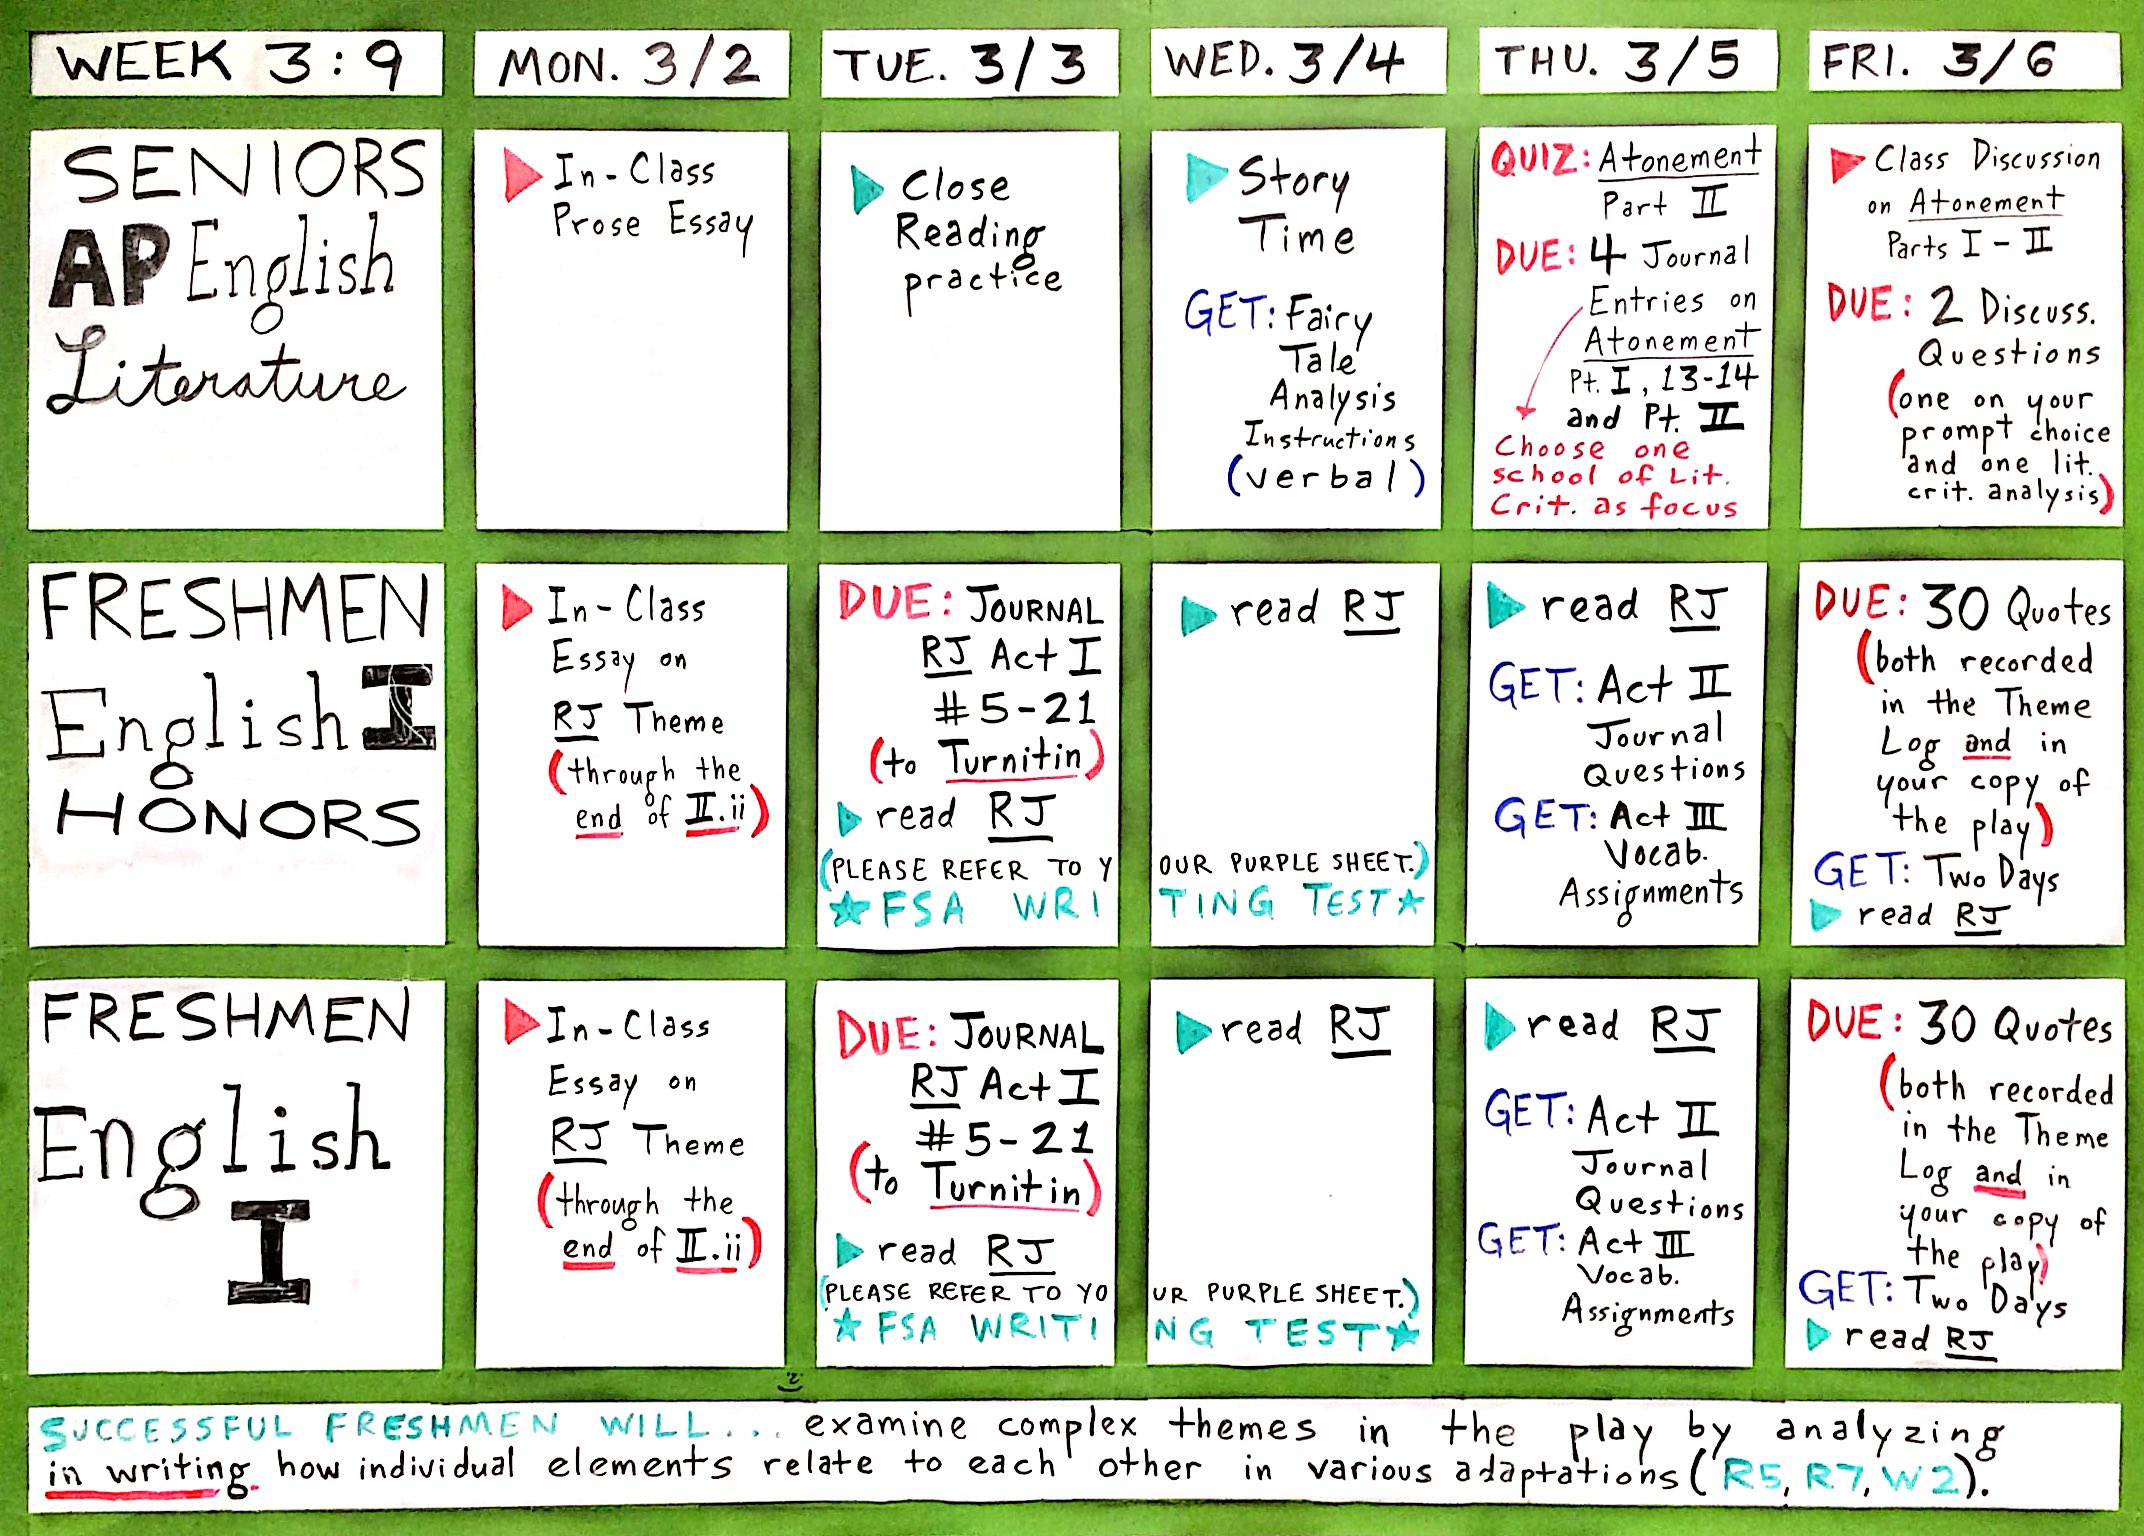 WEEK 3:9
MON. 3/2
TUE. 3/3
WED. 3/4
THU. 3/5
FRI. 3/6
SENIORS
AP English
Literature
In-Class
Prose Essay
Close
Reading
practice
Story
Time
GET: Fairy
Tale
Analysis
Instructions
(verbal)
QUIZ: Atonement
Part II
DUE: 4 Journal
Entries on
Atonement
Pt. I, 13-14
and Pt. II
Choose one
school of Lit.
Crit. as focus
Class Discussion
on Atonement
Parts I - II
DUE: 2 Discuss.
Questions
(one on your
prompt choice
and one lit.
crit. analysis)
FRESHMEN
English I
HONORS
In-Class
Essay on
RJ Theme
(through the
end of II.ii)
DUE: JOURNAL
RJ Act I
#5-21
(to Turnitin)
read RJ
(PLEASE REFER TO Y
★FSA WRI
read RJ
OUR PURPLE SHEET.)
TING TEST★
read RJ
GET: Act II
Journal
Questions
GET: Act III
Vocab.
Assignments
DUE: 30 Quotes
(both recorded
in the Theme
Log and in
your copy of
the play)
GET: Two Days
read RJ
FRESHMEN
English
I
In-Class
Essay on
RJ Theme
(through the
end of II.ii)
DUE: JOURNAL
RJ Act I
#5-21
(to Turnitin)
read RJ
(PLEASE REFER TO YO
★FSA WRITI
read RJ
UR PURPLE SHEET.)
NG TEST★
read RJ
GET: Act II
Journal
Questions
GET: Act III
Vocab.
Assignments
DUE: 30 Quotes
(both recorded
in the Theme
Log and in
your copy of
the play)
GET: Two Days
read RJ
SUCCESSFUL FRESHMEN WILL... examine complex themes in the play by analyzing
in writing how individual elements relate to each other in various adaptations (R5, R7, W2).